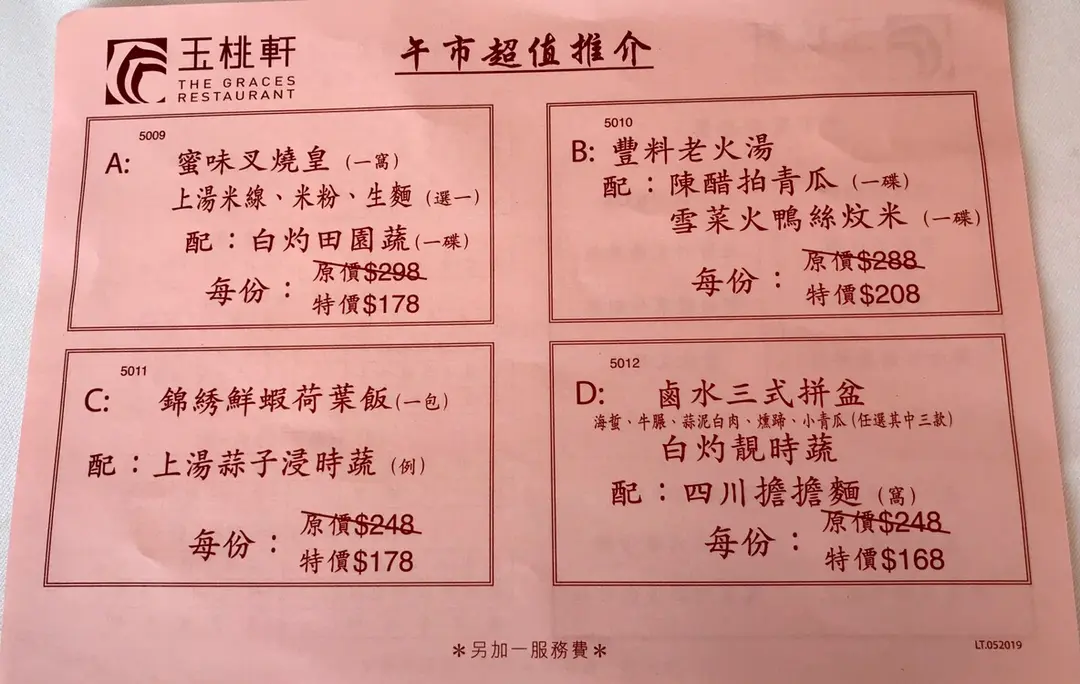 玉桃軒
THE GRACES
RESTAURANT
午市超值推介
5009
A: 蜜味叉燒皇 (一窩)
上湯米線、米粉、生麵 (選一)
配：白灼田園蔬(一碟)
原價$298
每份：
特價$178
5010
B: 豐料老火湯
配：陳醋拍青瓜 (一碟)
雪菜火鴨絲炆米 (一碟)
原價$288
每份：
特價$208
5011
C: 錦綉鮮蝦荷葉飯(一包)
配：上湯蒜子浸時蔬 (例)
原價$248
每份：
特價$178
5012
D: 鹵水三式拼盆
海蜇、牛腱、蒜泥白肉、燻蹄、小青瓜(任選其中三款)
白灼靚時蔬
配：四川擔擔麵 (窩)
原價$248
每份：
特價$168
＊另加一服務費＊
LT.052019